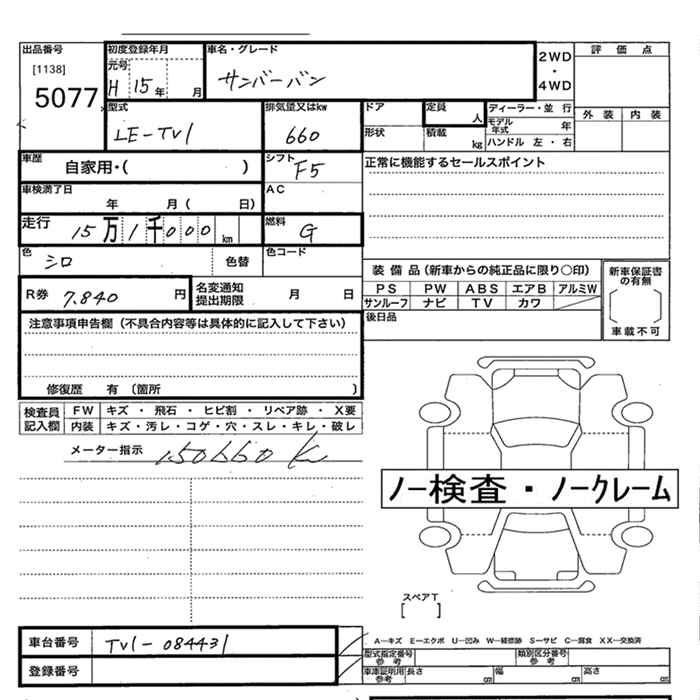 出品番号 初度登録年月 車名・グレード 評価点
[1138] 元号 サンバーバン 2WD・4WD
5077 H 15年 月
型式 排気量又はkw ドア 定員 人 ディーラー・並行 外装 内装
LE-TV1 660 形状 積載 kg モデル年式 年
ハンドル 左・右
車歴 自家用・( ) シフト F5 正常に機能するセールスポイント
車検満了日 年 月( 日) AC
走行 15万1千000km 燃料 G
色 シロ 色替 色コード
装備品(新車からの純正品に限り○印) 新車保証書の有無
R券 7.840円 名変通知提出期限 月 日 PS PW ABS エアB アルミW
サンルーフ ナビ TV カワ [ ]
注意事項申告欄(不具合内容等は具体的に記入して下さい) 後日品 車載不可
修復歴 有(箇所 )
検査員記入欄 FW キズ・飛石・ヒビ割・リペア跡・X要
内装 キズ・汚レ・コゲ・穴・スレ・キレ・破レ
メーター指示 150660 K
ノー検査・ノークレーム
スペアT
[ ]
車台番号 TV1-084431 A―キズ E―エクボ U―凹み W―補修跡 S―サビ C―腐食 XX―交換済
登録番号 型式指定番号参考 類別区分番号参考
車庫証明用参考 長さ cm 幅 cm 高さ cm